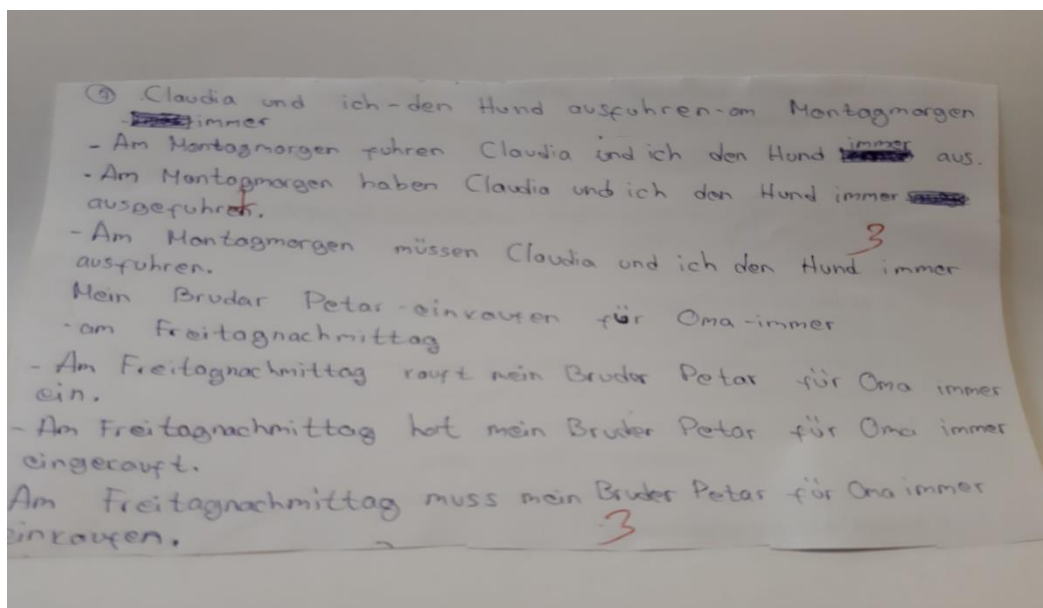 ① Claudia und ich - den Hund ausfuhren - am Montagmorgen
- immer
- Am Montagmorgen fuhren Claudia und ich den Hund immer aus.
- Am Montagmorgen haben Claudia und ich den Hund immer
ausgefuhrt.
3
- Am Montagmorgen müssen Claudia und ich den Hund immer
ausfuhren.
Mein Brudar Petar - einkaufen für Oma - immer
- am Freitagnachmittag
- Am Freitagnachmittag kauft mein Bruder Petar für Oma immer
ein.
- Am Freitagnachmittag hat mein Bruder Petar für Oma immer
eingekauft.
Am Freitagnachmittag muss mein Bruder Petar für Oma immer
einkaufen.
3